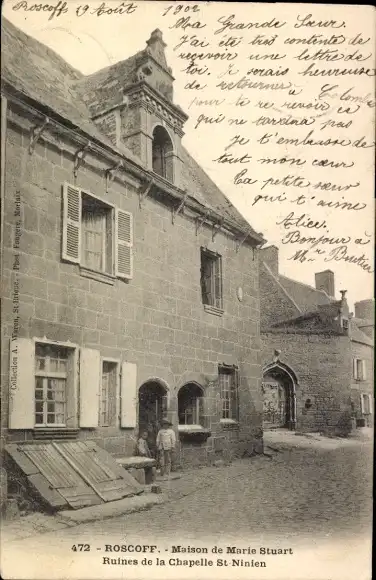 Roscoff 29 Août 1902
Ma Grande Sœur.
J'ai été très contente de
recevoir une lettre de
toi. Je serais heureuse
de retourner à Colombe
pour te revoir ce
qui ne tardera pas
je t'embrasse de
tout mon cœur
Ta petite sœur
qui t'aime
Alice.
Bonjour à
Mr
Collection A. Waron, St-Brieuc. - Phot. Morlaix
472 - ROSCOFF. - Maison de Marie Stuart
Ruines de la Chapelle St-Ninien